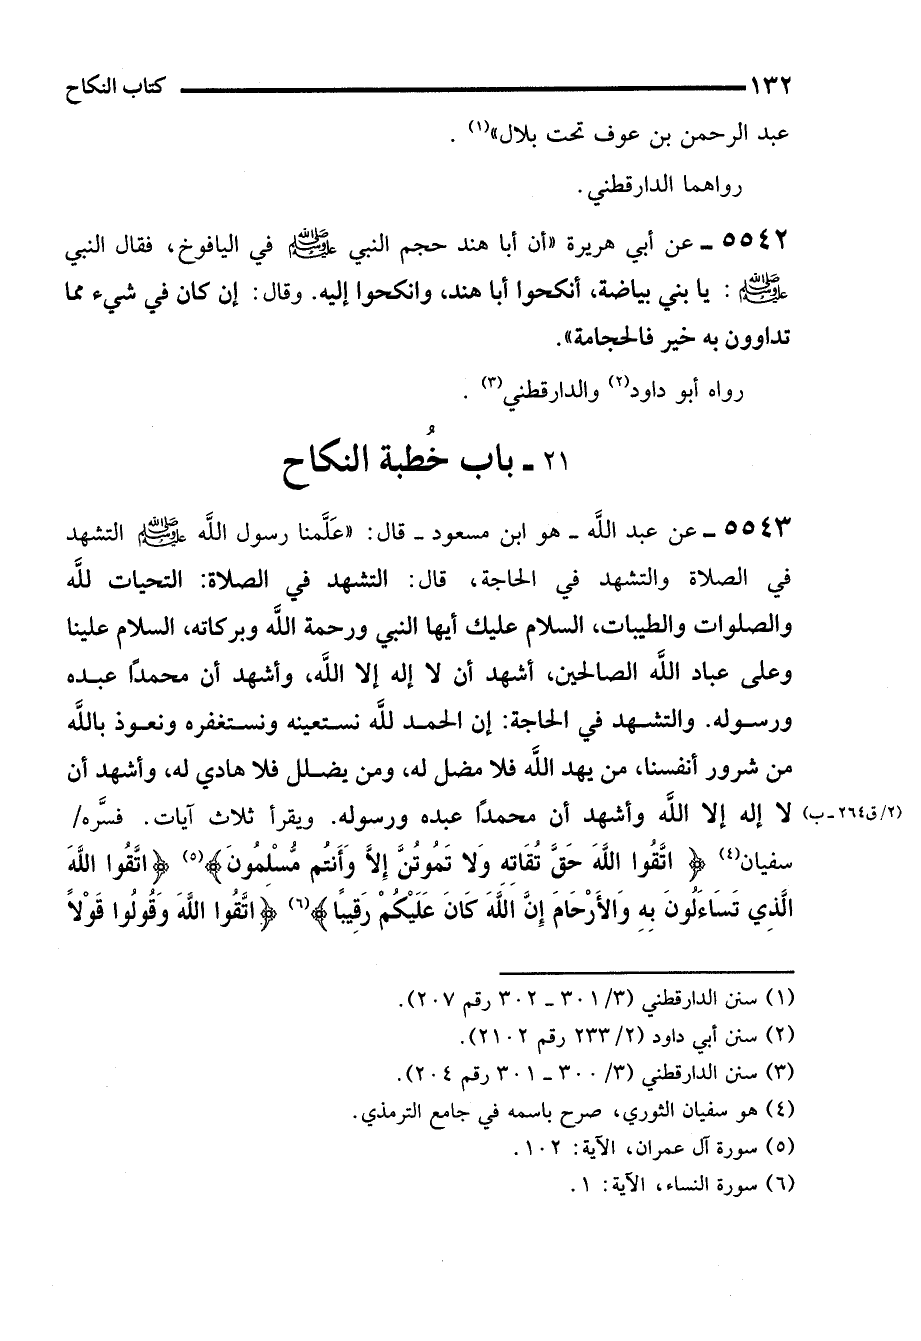 ١٣٢ كتاب النكاح
عبد الرحمن بن عوف تحت بلال»(١) .
رواهما الدارقطني.
٥٥٤٢ ـ عن أبي هريرة «أن أبا هند حجم النبي ﷺ في اليافوخ، فقال النبي
ﷺ : يا بني بياضة، أنكحوا أبا هند، وانكحوا إليه. وقال: إن كان في شيء مما
تداوون به خير فالحجامة».
رواه أبو داود(٢) والدارقطني(٣) .
٢١ ـ باب خُطبة النكاح
٥٥٤٣ ـ عن عبد اللَّه ـ هو ابن مسعود ـ قال: «عَلَّمنا رسول اللَّه ﷺ التشهد
في الصلاة والتشهد في الحاجة، قال: التشهد في الصلاة: التحيات للَّه
والصلوات والطيبات، السلام عليك أيها النبي ورحمة اللَّه وبركاته، السلام علينا
وعلى عباد اللَّه الصالحين، أشهد أن لا إله إلا اللَّه، وأشهد أن محمدًا عبده
ورسوله. والتشهد في الحاجة: إن الحمد للَّه نستعينه ونستغفره ونعوذ باللَّه
من شرور أنفسنا، من يهد اللَّه فلا مضل له، ومن يضلل فلا هادي له، وأشهد أن
لا إله إلا اللَّه وأشهد أن محمدًا عبده ورسوله. ويقرأ ثلاث آيات. فسَّره/ (٢/ق٢٦٤-ب)
سفيان(٤) ﴿ اتَّقُوا اللَّهَ حَقَّ تُقَاتِهِ وَلا تَمُوتُنَّ إِلاَّ وَأَنتُم مُّسْلِمُونَ﴾(٥) ﴿اتَّقُوا اللَّهَ
الَّذِي تَسَاءَلُونَ بِهِ وَالأَرْحَامَ إِنَّ اللَّهَ كَانَ عَلَيْكُمْ رَقِيبًا﴾(٦) ﴿اتَّقُوا اللَّهَ وَقُولُوا قَوْلاً
(١) سنن الدارقطني (٣/ ٣٠١ ـ ٣٠٢ رقم ٢٠٧).
(٢) سنن أبي داود (٢/ ٢٣٣ رقم ٢١٠٢).
(٣) سنن الدارقطني (٣/ ٣٠٠ ـ ٣٠١ رقم ٢٠٤).
(٤) هو سفيان الثوري، صرح باسمه في جامع الترمذي.
(٥) سورة آل عمران، الآية: ١٠٢.
(٦) سورة النساء، الآية: ١.